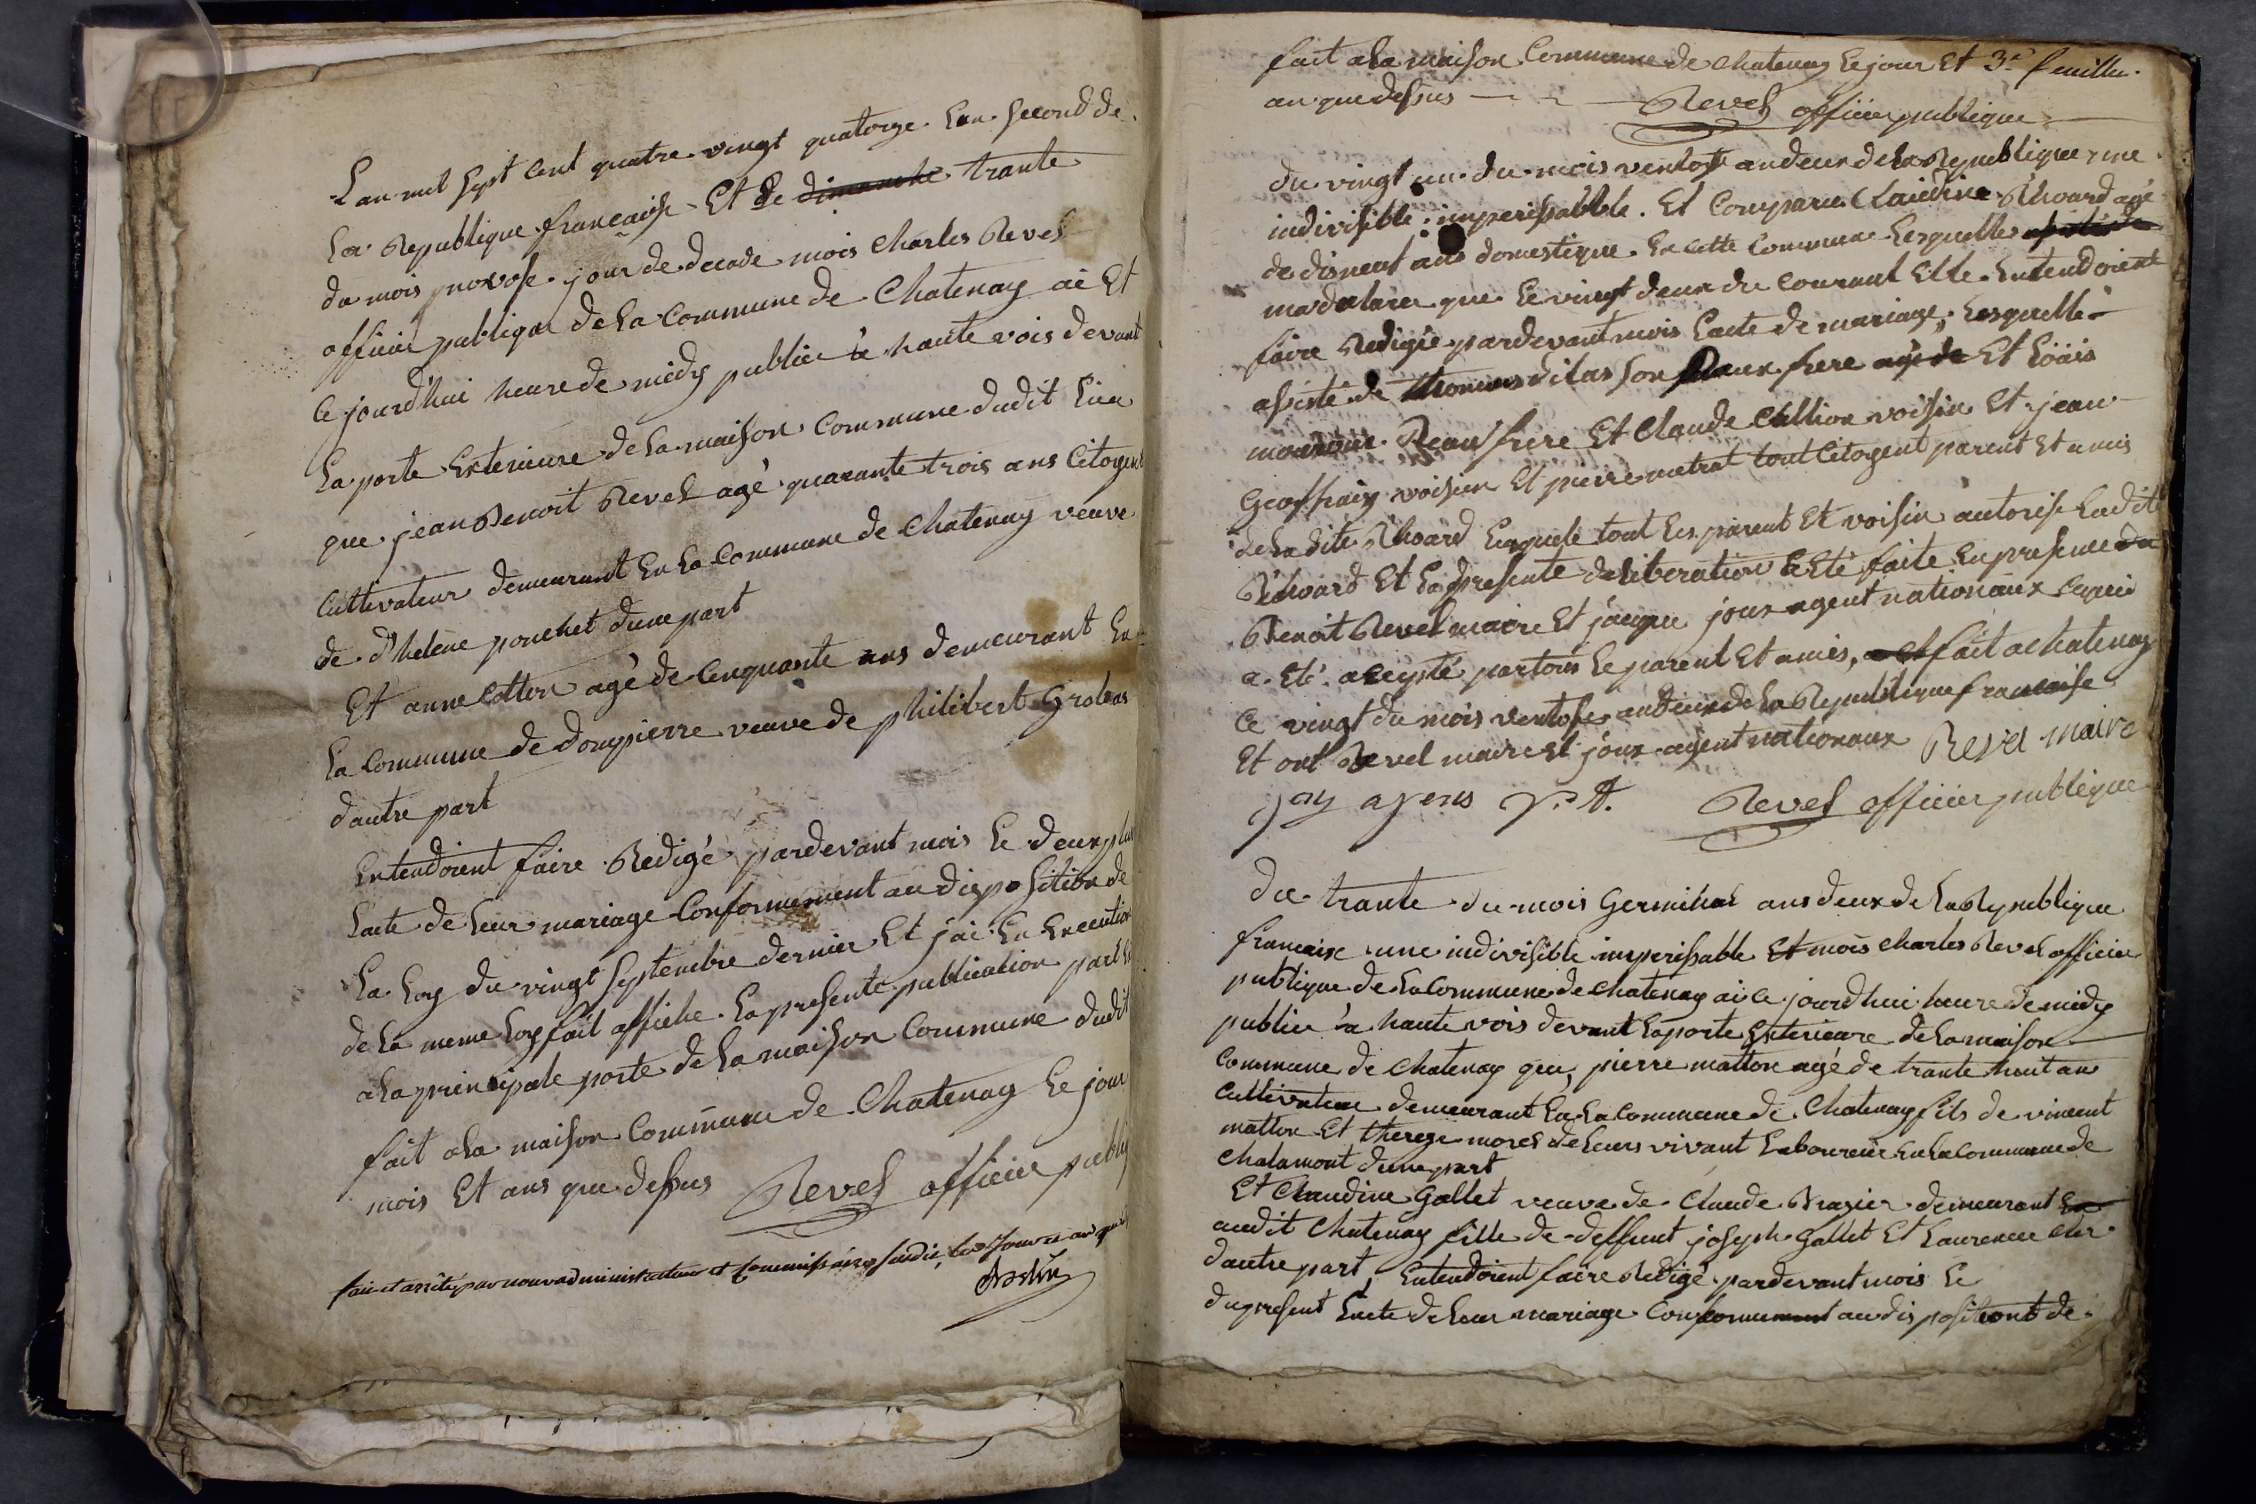 L'an mil sept cent quatre vingt quatorze L'an second de
La Republique francaise Et le dimanche trante
du mois nivose jour de decade mois Charles Revel
officier publique de La Commune de Chatenay ai Et
ce jourd'hui heure de midy publier à haute vois devant
La porte Exterieure de La maison Commune dudit Lieu
que jean Benoit Revel agé quarante trois ans Citoyent
Cultivateur demeurant En La Commune de Chatenay veuve
de d'helene ponchet d'une part
Et anne Cotton agé de Cenquante ans demeurant En
La Commune de dompierre veuve de philibert Grobas
dautre part
Entendoient faire Redigé pardevant mois Le deux
Lacte de Leur mariage Conformement au disposition de
La Loy du vingt septembre dernier Et j'ai En Execution
de La meme Loy fait affiche La presente publication
a La principale porte de La maison Commune dudit
fait a La maison Commune de Chatenay Le jour
mois Et ans que dessus Revel officier publiq
fait et arrêté par nous administrateur et Commissaire susdit, les jour et an
fait a La maison Commune de chatenay Le jour Et 3e feuillu
an que dessus Revel officier publique
du vingt un du mois ventose an deux de La Republique une
indivisible imperissabble. Et Comparu Claudine Rhoard agé
de disneuf ans domestique En Cette Commune Lesquelle
ma declarer que Le vingt deux du Courant Elle Entendoient
faire Redigée pardevant mois Lacte de mariage, Lesquelle
asisté de Thomas dilas son Beaux frere agé de Et Loüis
Beau frere Et Claude voisin Et jean
Geoffray voisin Et pierre metrat tout Citoyent parent Et amis
de La dite Rhoard Laquele tout Les parent Et voisin autorise Ladite
Rhoard Et La presente deliberation a Eté faite En presence du
Benoit Revel maire Et jacque joux agent nationaux
a Eté accepté par tous Le parent Et amis, fait a Chatenay
ce vingt du mois ventose an deux de La Republique francaise
Et ont Revel maire Et joux agent nationaux Revel maire
Revel officier publique
du trante du mois Germinal ans deux de La Republique
francaise une indivisible imperissable Et mois Charles Revel officier
publique de La Commune de Chatenay ai ce jourdhui heure de midy
publier à haute vois devant La porte Exterieure de La maison
Commune de Chatenay que, pierre matton agé de trante huit an
Cultivateur demeurant En La Commune de Chatenay fils de vincent
matton Et therese morel de Leurs vivant Laboureur En La Commune de
Chalamont d'une part
Et Claudine Gallet veuve de Claude Brazier demeurant En
audit Chatenay fille de deffunt joseph Gallet Et Laurence
dautre part, Entendoient faire Redigé pardevant mois Le
du present Lacte de Leur mariage Conformement au dispositiont de